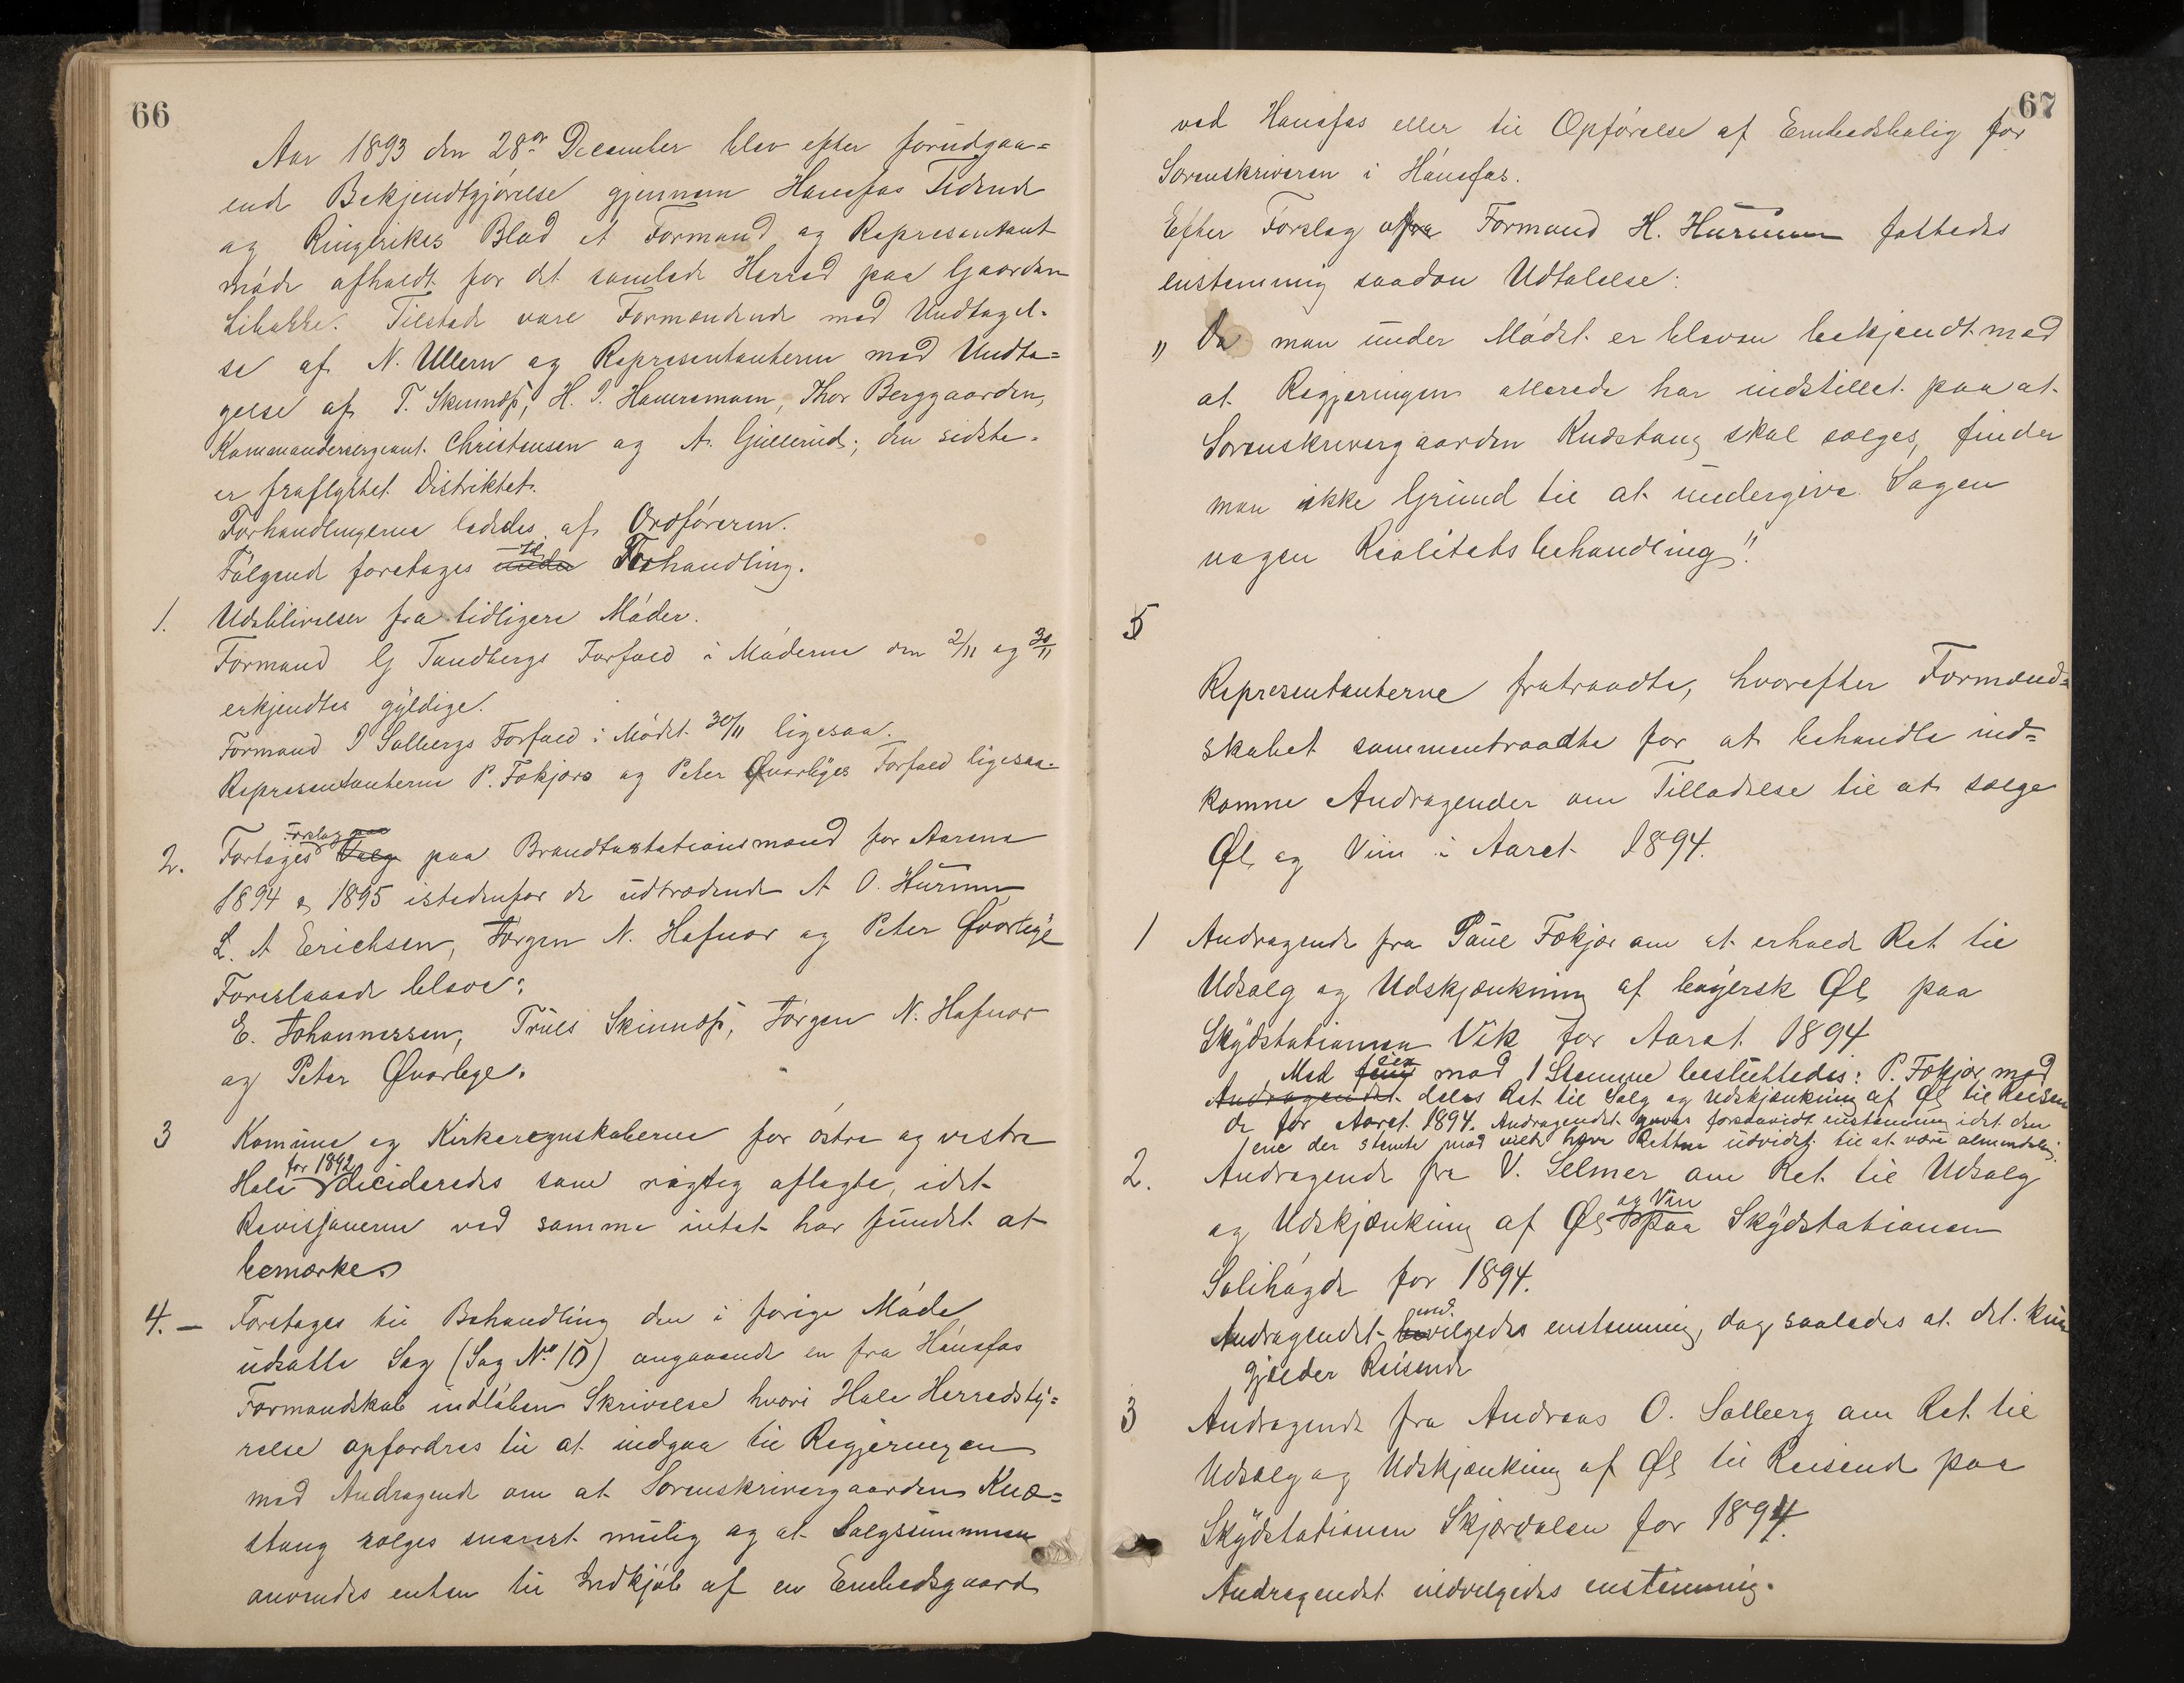 66
Aar 1893 den 28de December blev efter forudgaa=
ende Bekjendtgjörelse gjennem Hønefos Tidende
og Ringerikes Blad et Formand og Representant
möde afholdt for det samlede Herred paa Gaarden
Libakke. Tilstede vare Formændende med Undtagel-
se af N. Ullern og Representanterne med Undta=
gelse af T. Skinnæs, H. I. Hauersmoen, Thor Berggaarden,
Kommandersergeant Christensen og A. Gullerud; den sidste
er fraflyttet Distriktet.
Forhandlingerne lededes af Ordföreren.
Fölgende foretages under til Forhandling.
1. Udeblivelser fra tidligere Möder.
Formand G Tandbergs Forfald i Möderne den 2/11 og 30/11
erkjendtes gyldige.
Formand I Solbergs Forfald i Mödet 30/11 ligesaa.
Representanterne P. Fokjær og Peter Qvarliges Forfald ligesaa.
2. Fortages Valg Forslag paa paa Brandtaxtationsmænd for Aarene
1894 & 1895 istedenfor de udtrædende A O. Hurum
L. A Erichsen, Jørgen N. Hafnor og Peter Qvarlige
Foreslaaede bleve:
E. Johannessen, Truls Skinnæs, Jørgen N. Hafnor
og Peter Qvarlige.
3 Komune og Kirkeregnskaberne for östre og vestre
Hole for 1892 decideredes som rigtig aflagte, idet
Revisjonerne ved samme intet har fundet at
bemærke.
4. — Foretages til Behandling den i forige Möde
udsatte Sag (Sag No 10) angaaende en fra Hönefos
Formandskab indlöben Skrivelse hvori Hole Herredsty=
relse opfordres til at indgaa til Regjeringen
med Andragende om at Sorenskrivergaarden Knæ=
stang sælges snarest mulig og at Salgssummen
anvendes enten til Indkjöb af en Embedsgaard
67
ved Hønefos eller til Opförelse af Embedsbolig for
Sorenskriveren i Hönefos.
Efter Forslag af fra Formand H. Hurum fattedes
enstemmig saadan Udtalelse:
" Da man under Mödet er bleven bekjendt med
at Regjeringen allerede har indstillet paa at
Sorenskrivergaarden Knæstang skal sælges, finder
man ikke Grund til at undergive Sagen
nogen Realitetsbehandling."
5
Representanterne fratraadte, hvorefter Formand=
skabet sammentraadte for at behandle ind=
komne Andragender om Tilladelse til at sælge
Øl og Vin i Aaret 1894.
1 Andragende fra Paul Fokjær om at erholde Ret til
Udsalg og Udskjænkning af bayersk Øl paa
Skydstationen Vik for Aaret 1894
Med mod 1 Stemme besluttedes: P. Fokjær med
Andragendet deles Ret til Salg og Udskjænkning af Øl til Reisen
de for Aaret 1894. Andragendet forsaavidt enstemmig idet den
ene der stemte mod vilde have Retten udvidet til at være almindelig.
2. Andragende fra V. Selmer om Ret til Udsalg
og Udskjænkning af Øl og Vin paa Skydstationen
Solihögda for 1894.
Andragendet bevilgedes ind. enstemmig, dog saaledes at det kun
gjælder Reisende
3 Andragende fra Andreas O. Solberg om Ret til
Udsalg og Udskjænkning af Øl til Reisende paa
Skydstationen Skjærdalen for 1894.
Andragendet indvilgedes enstemmig.